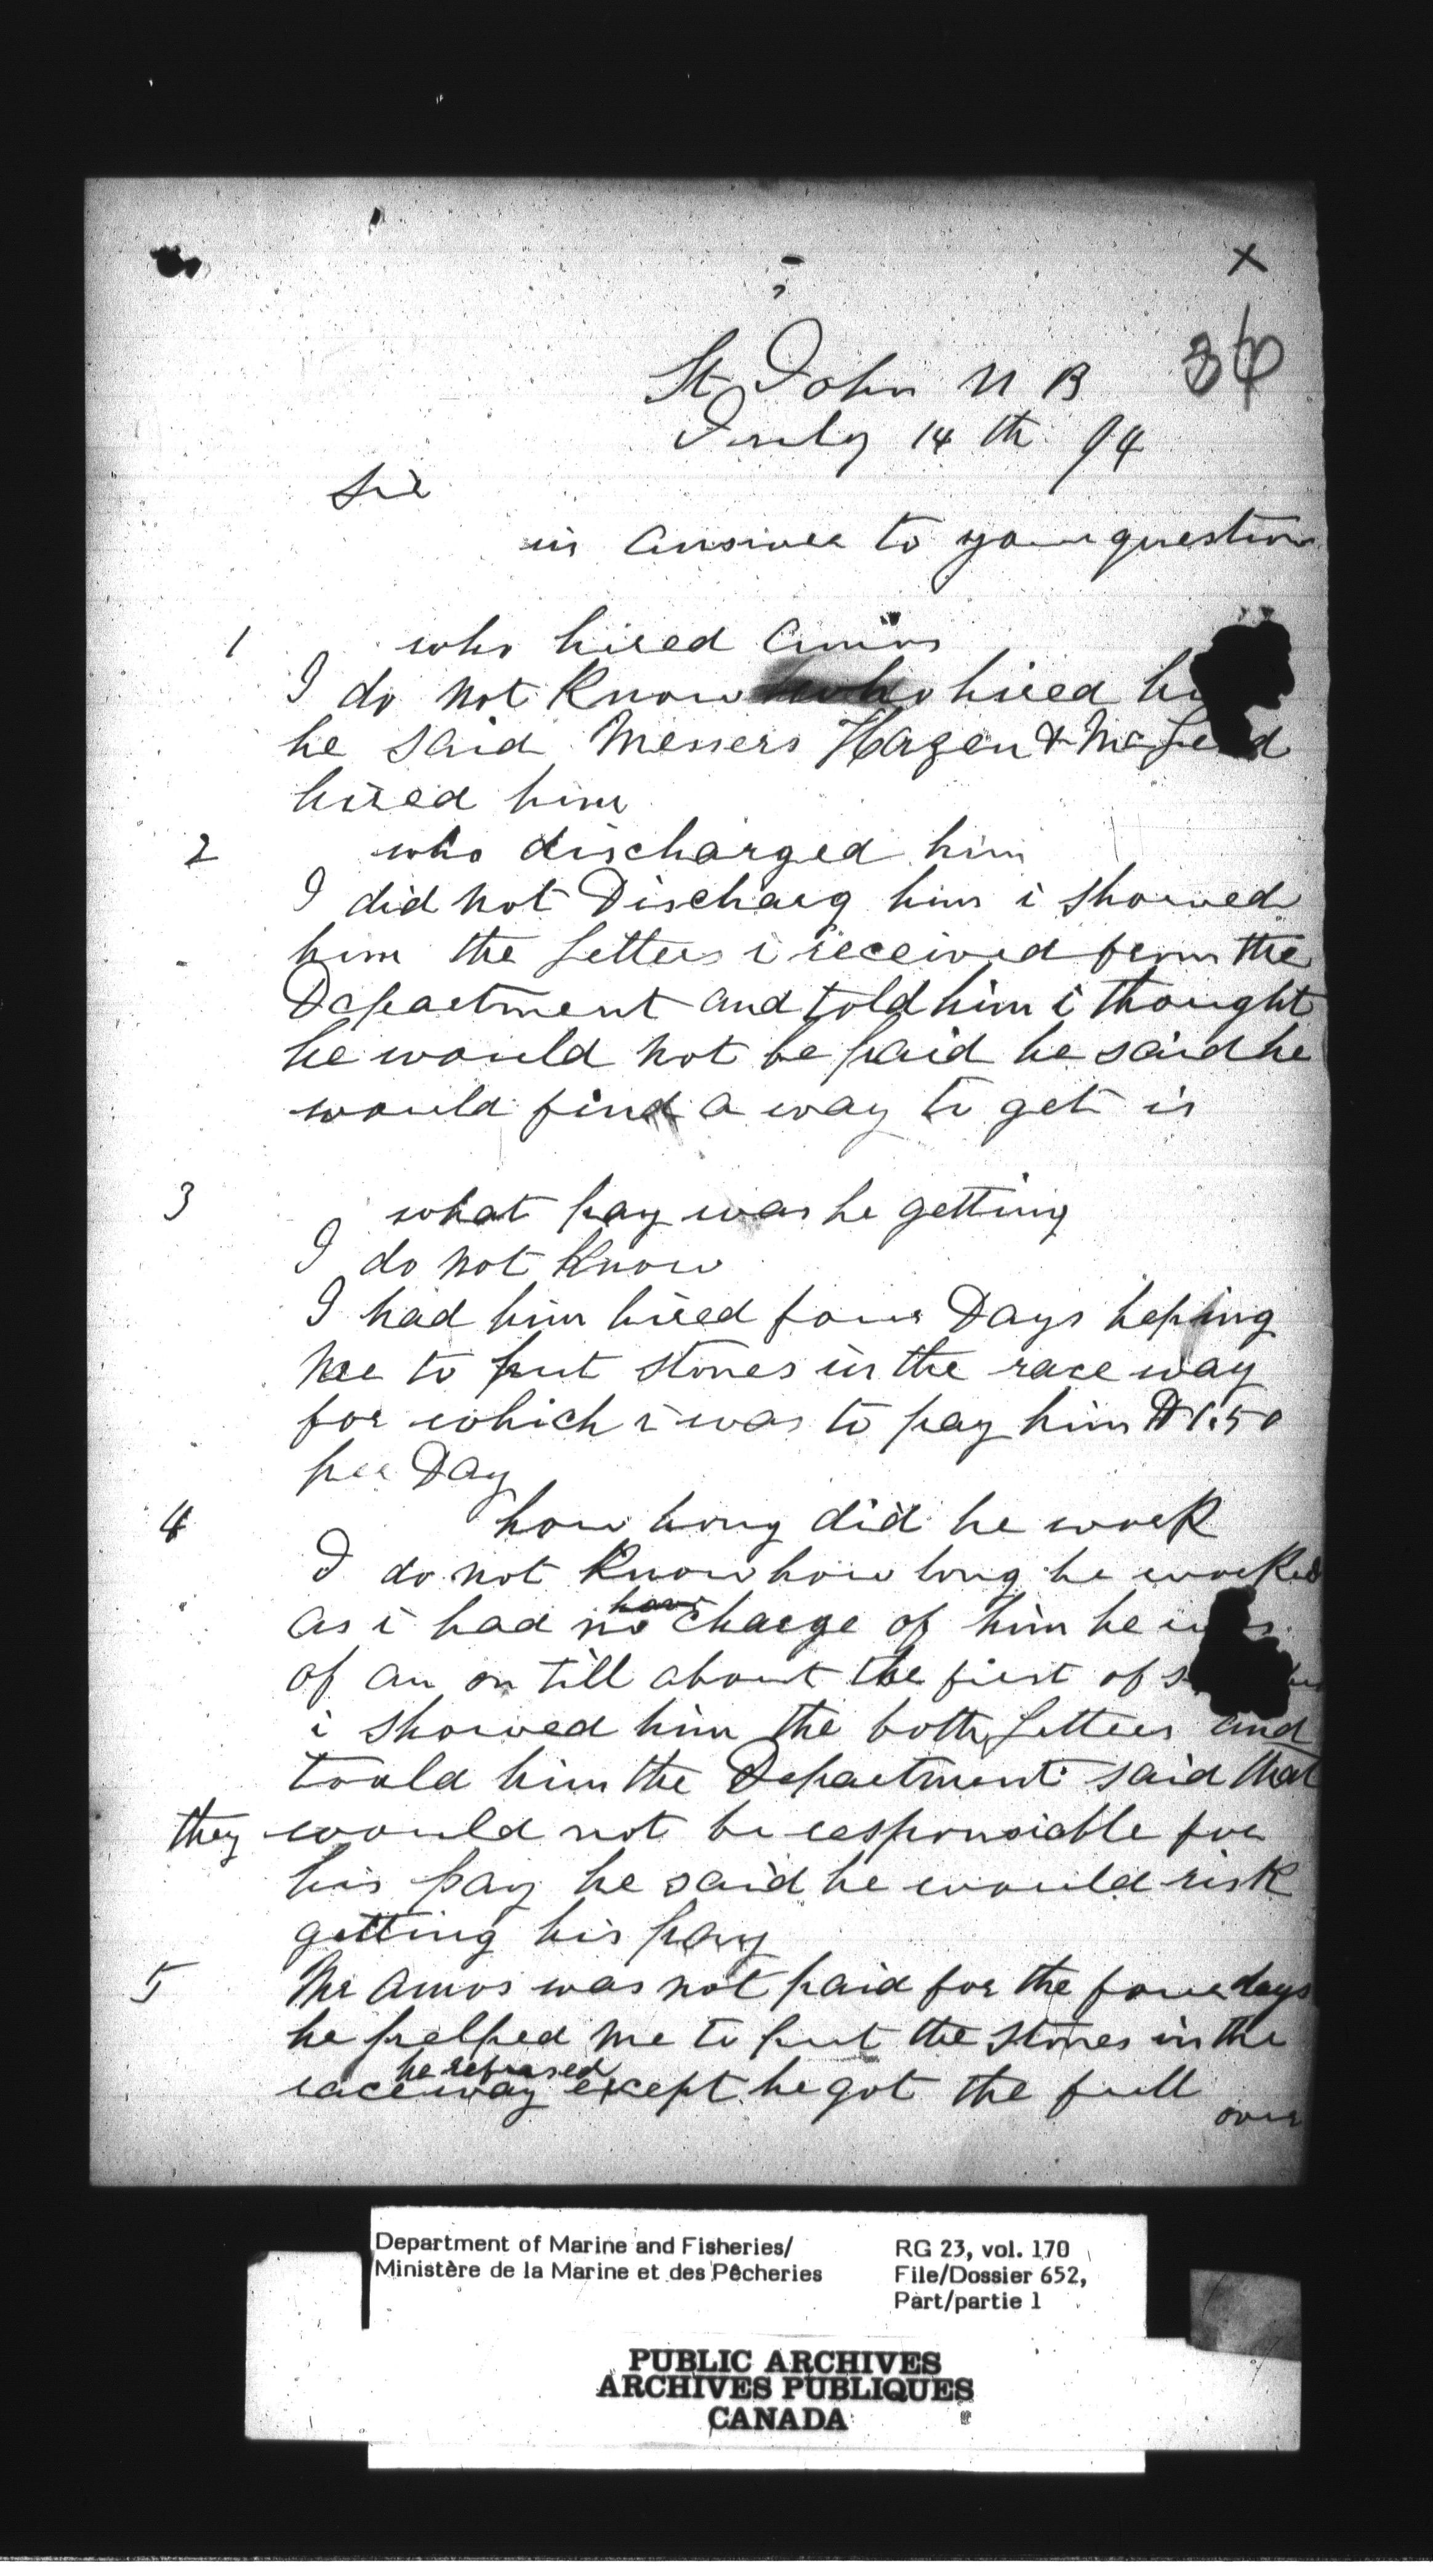 X
St John N B
July 14 th 94
Sir
in answer to your question
1 who hired Amos
I do not Know who hired
he said Messers Hazen & McLeod
hired him
2 who discharged him
I did not Discharg him i showed
him the Letters i received from the
Department and told him i thought
he would not be paid he said he
would find a way to get is
3 what pay was he getting
I do not Know
I had him hired four Days heping
me to put stones in the race way
for which i was to pay him $1.50
per Day
4 how long did he work
I do not Know how long he worked
as i had no charge of him he was
of an on till about the first of
i showed him the both Letters and
tould him the Department said that
they would not be responsiable for
his pay he said he would risk
getting his pay
5 Mr Amos was not paid for the four days
he helped me to put the stones in the
he refused
raceway except he got the full
over
Department of Marine and Fisheries/
Ministère de la Marine et des Pêcheries
RG 23, vol. 170
File/Dossier 652,
Part/partie 1
PUBLIC ARCHIVES
ARCHIVES PUBLIQUES
CANADA